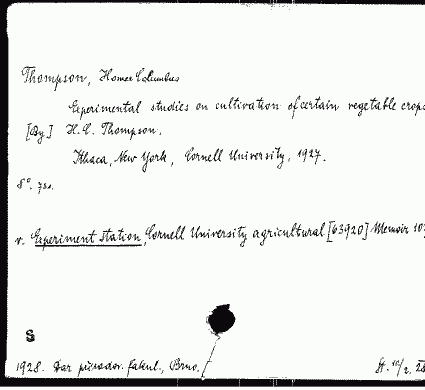 Thompson, Homer Columbus
Experimental studies on cultivation of certain vegetable crops
[By] H. C. Thompson.
Ithaca, New York, Cornell University, 1927.
8°.
v. Experiment station, Cornell University agricultural [63920] Memoir 107
S
1928. Dar přírodov. fakul., Brno.